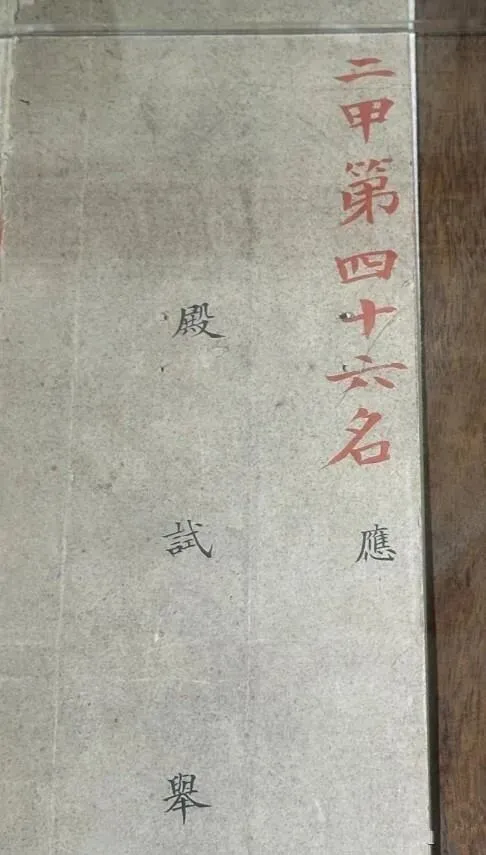 二甲第四十六名
應
殿試舉